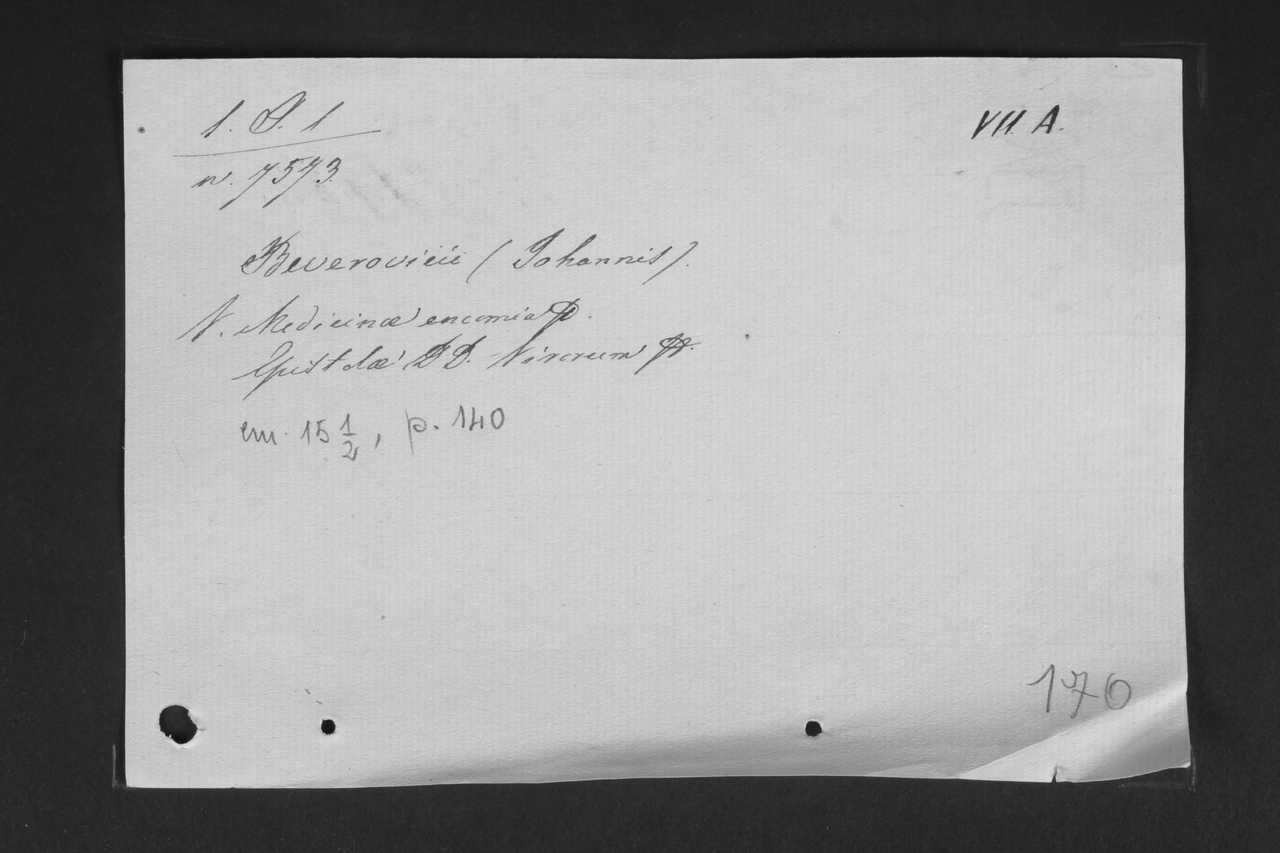 1. S. 1
VII. A.
n. 7573.
Beverovicii (Johannis).
V. Medicinæ encomia
Epistolæ DD. Virorum
cm. 15 1/2, p. 140
170